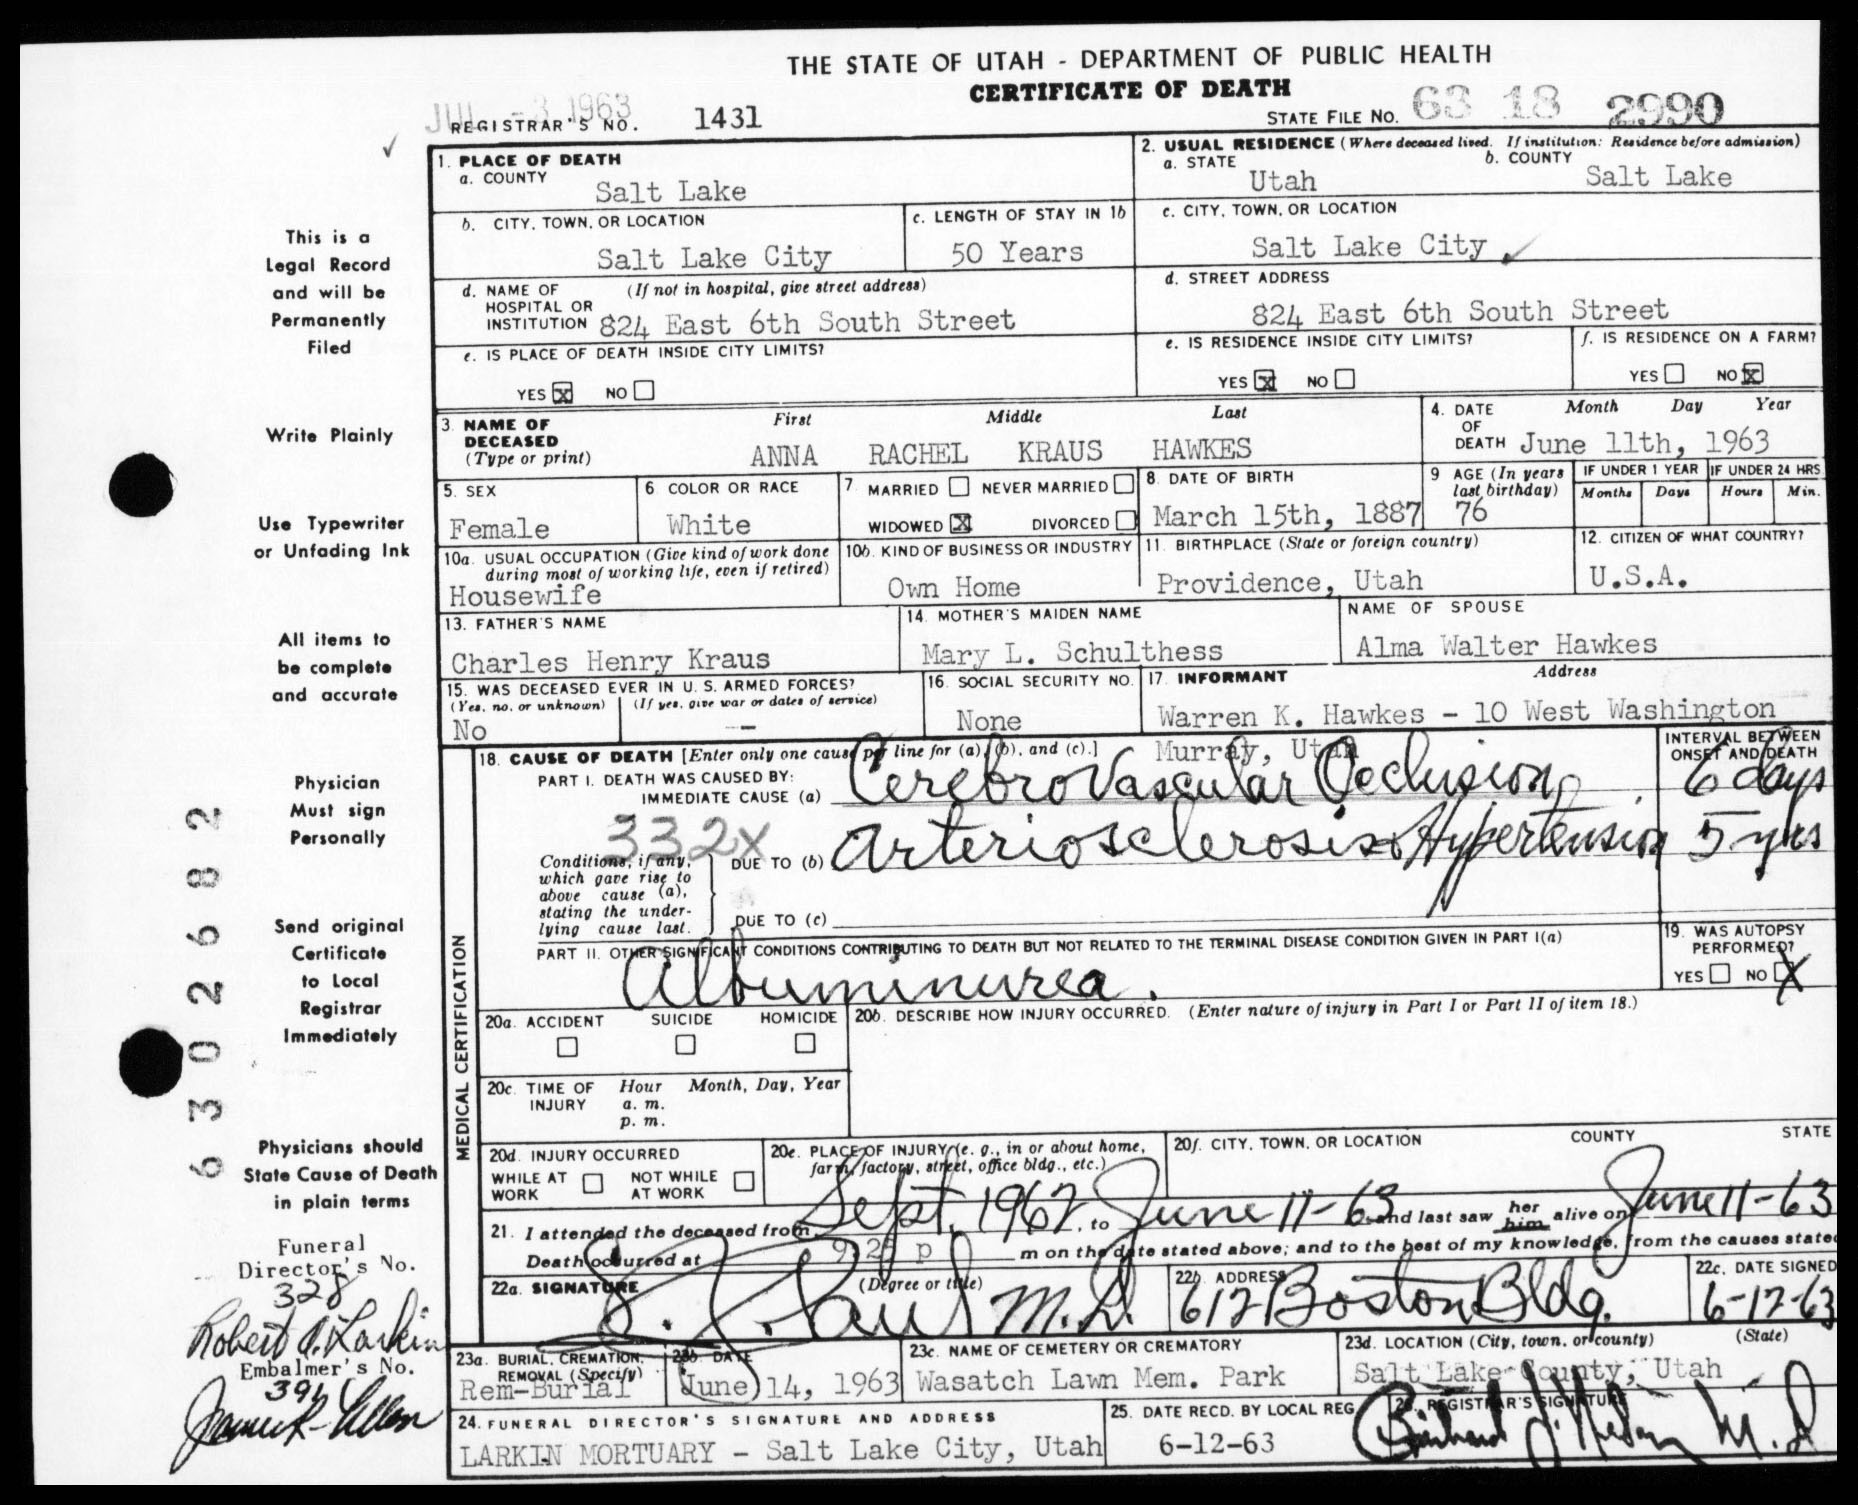 THE STATE OF UTAH - DEPARTMENT OF PUBLIC HEALTH
CERTIFICATE OF DEATH
JUL -3 1963
REGISTRAR'S NO. 1431
STATE FILE NO. 63 18 2990
1. PLACE OF DEATH
a. COUNTY
Salt Lake
2. USUAL RESIDENCE (Where deceased lived. If institution: Residence before admission)
a. STATE b. COUNTY
Utah Salt Lake
b. CITY, TOWN, OR LOCATION
Salt Lake City
c. LENGTH OF STAY IN 1b
50 Years
c. CITY, TOWN, OR LOCATION
Salt Lake City
d. NAME OF (If not in hospital, give street address)
HOSPITAL OR
INSTITUTION 824 East 6th South Street
d. STREET ADDRESS
824 East 6th South Street
e. IS PLACE OF DEATH INSIDE CITY LIMITS?
YES X NO
e. IS RESIDENCE INSIDE CITY LIMITS?
YES X NO
f. IS RESIDENCE ON A FARM?
YES NO X
3. NAME OF
DECEASED
(Type or print)
First Middle Last
ANNA RACHEL KRAUS HAWKES
4. DATE Month Day Year
OF
DEATH June 11th, 1963
5. SEX
Female
6. COLOR OR RACE
White
7. MARRIED NEVER MARRIED
WIDOWED X DIVORCED
8. DATE OF BIRTH
March 15th, 1887
9 AGE (In years
last birthday)
76
IF UNDER 1 YEAR IF UNDER 24 HRS.
Months Days Hours Min.
10a. USUAL OCCUPATION (Give kind of work done
during most of working life, even if retired)
Housewife
10b. KIND OF BUSINESS OR INDUSTRY
Own Home
11. BIRTHPLACE (State or foreign country)
Providence, Utah
12. CITIZEN OF WHAT COUNTRY?
U.S.A.
13. FATHER'S NAME
Charles Henry Kraus
14. MOTHER'S MAIDEN NAME
Mary L. Schulthess
NAME OF SPOUSE
Alma Walter Hawkes
15. WAS DECEASED EVER IN U. S. ARMED FORCES?
(Yes, no, or unknown) (If yes, give war or dates of service)
No —
16. SOCIAL SECURITY NO.
None
17. INFORMANT Address
Warren K. Hawkes - 10 West Washington
Murray, Utah
MEDICAL CERTIFICATION
18. CAUSE OF DEATH [Enter only one cause per line for (a), (b), and (c).]
PART I. DEATH WAS CAUSED BY:
IMMEDIATE CAUSE (a) Cerebro Vascular Occlusion
INTERVAL BETWEEN
ONSET AND DEATH
6 days
332X
Conditions, if any,
which gave rise to
above cause (a),
stating the under-
lying cause last.
DUE TO (b) Arteriosclerosis & Hypertension 5 yrs
DUE TO (c)
PART II. OTHER SIGNIFICANT CONDITIONS CONTRIBUTING TO DEATH BUT NOT RELATED TO THE TERMINAL DISEASE CONDITION GIVEN IN PART I(a)
Albuminurea.
19. WAS AUTOPSY
PERFORMED?
YES NO X
20a. ACCIDENT SUICIDE HOMICIDE
20b. DESCRIBE HOW INJURY OCCURRED. (Enter nature of injury in Part I or Part II of item 18.)
20c. TIME OF Hour Month, Day, Year
INJURY a. m.
p. m.
20d. INJURY OCCURRED
WHILE AT NOT WHILE
WORK AT WORK
20e. PLACE OF INJURY (e. g., in or about home,
farm, factory, street, office bldg., etc.)
20f. CITY, TOWN, OR LOCATION COUNTY STATE
21. I attended the deceased from Sept. 1962, to June 11-63 and last saw her him alive on June 11-63
Death occurred at 9:25 p m on the date stated above; and to the best of my knowledge, from the causes stated
22a. SIGNATURE (Degree or title)
M.D.
22b. ADDRESS
612 Boston Bldg.
22c. DATE SIGNED
6-12-63
23a. BURIAL, CREMATION,
REMOVAL (Specify)
Rem-Burial
23b. DATE
June 14, 1963
23c. NAME OF CEMETERY OR CREMATORY
Wasatch Lawn Mem. Park
23d. LOCATION (City, town, or county) (State)
Salt Lake County, Utah
24. FUNERAL DIRECTOR'S SIGNATURE AND ADDRESS
LARKIN MORTUARY - Salt Lake City, Utah
25. DATE RECD. BY LOCAL REG.
6-12-63
26. REGISTRAR'S SIGNATURE
M.D.
This is a
Legal Record
and will be
Permanently
Filed
Write Plainly
Use Typewriter
or Unfading Ink
All items to
be complete
and accurate
Physician
Must sign
Personally
Send original
Certificate
to Local
Registrar
Immediately
Physicians should
State Cause of Death
in plain terms
Funeral
Director's No.
328
Robert Larkin
Embalmer's No.
391
6302682